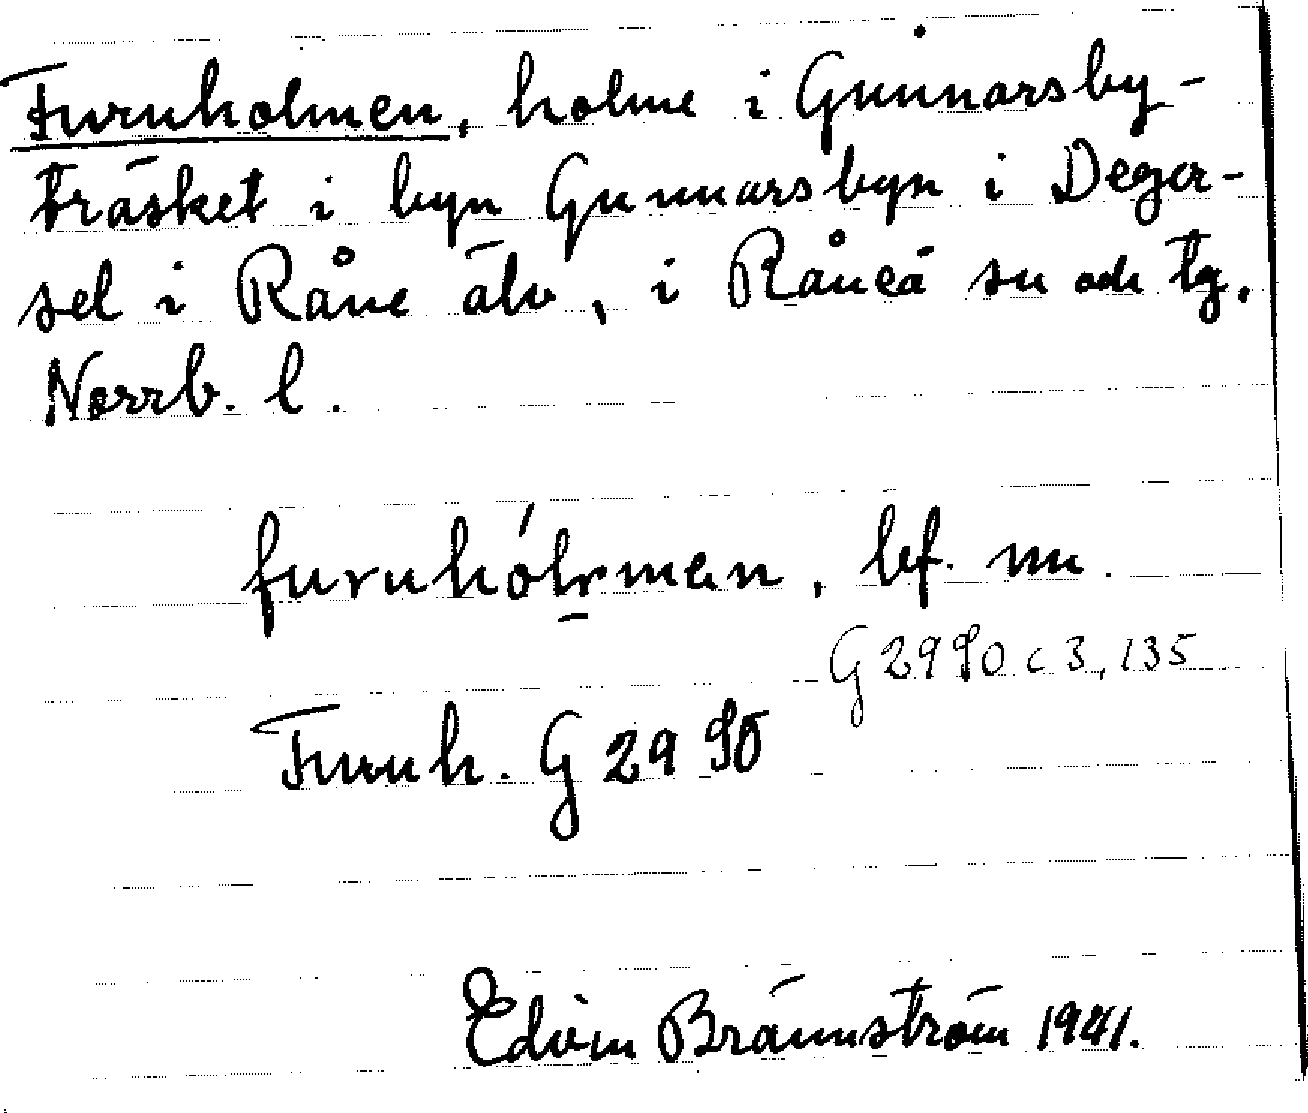 Furuholmen, holme i Gunnarsby-
träsket i byn Gunnarsbyn i Deger-
sel i Råne älv, i Råneå sn och tg,
Norrb. l.
furuhólmen, bf. nu.
G 2990 c 3, 135
Furuh. G 2990
Edvin Brännström 1941.